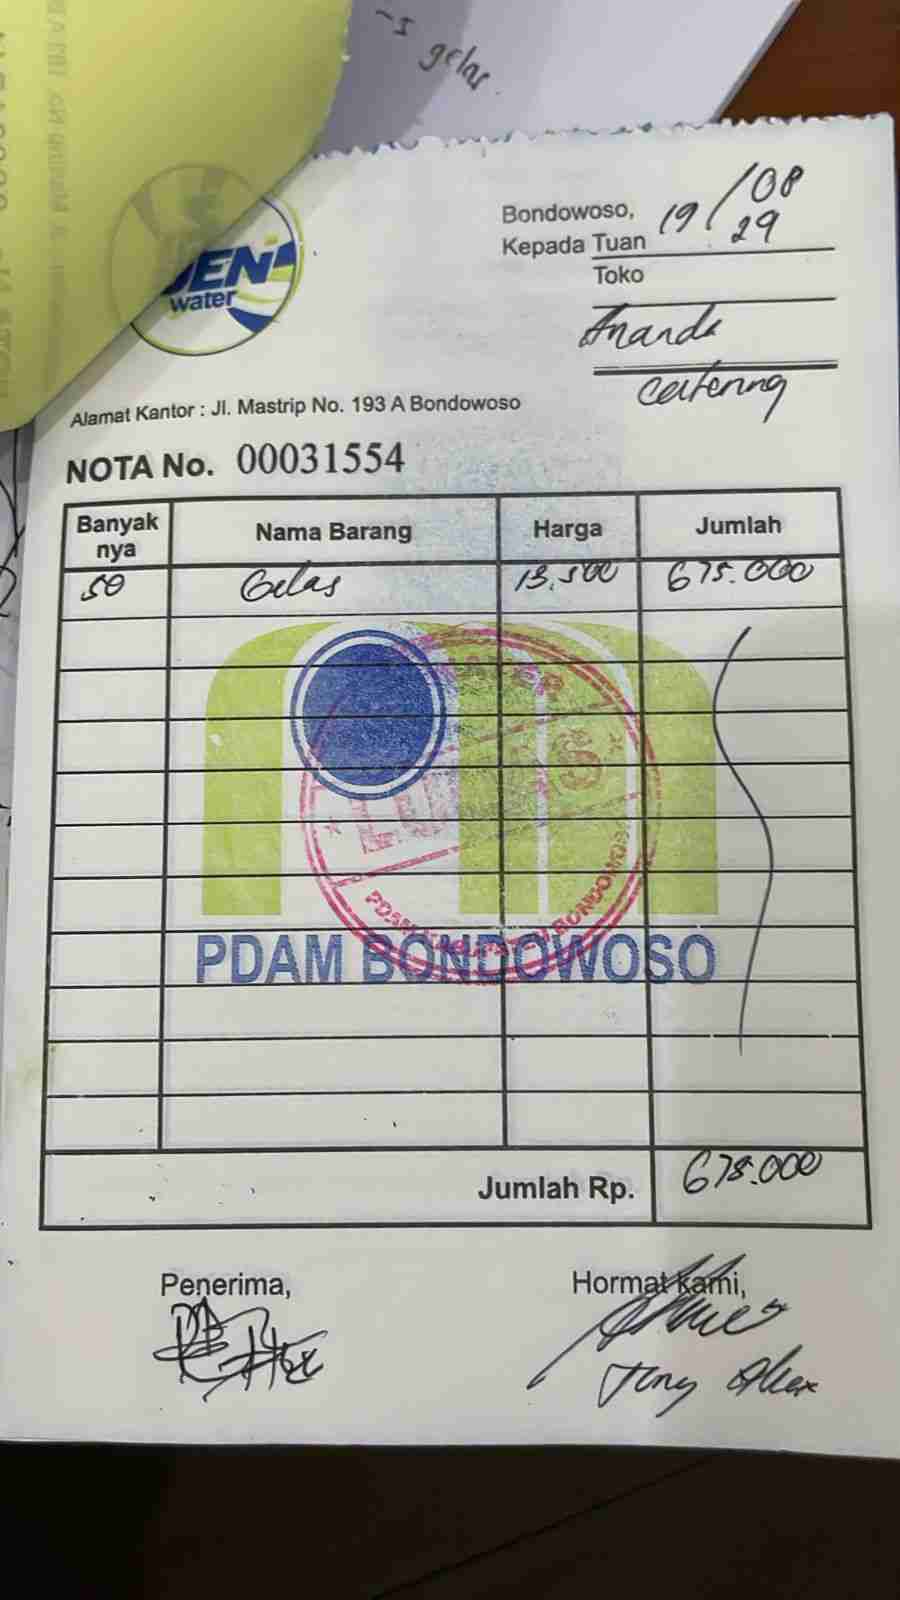 -5 gelas
JEN
water
Bondowoso, 19/08
29
Kepada Tuan
Toko
Ananda
Catering
Alamat Kantor : Jl. Mastrip No. 193 A Bondowoso
NOTA No. 00031554
Banyak nya Nama Barang Harga Jumlah
50 Gelas 13.500 675.000
LUNAS
PDAM BONDOWOSO
Jumlah Rp. 675.000
Penerima, Hormat Kami,